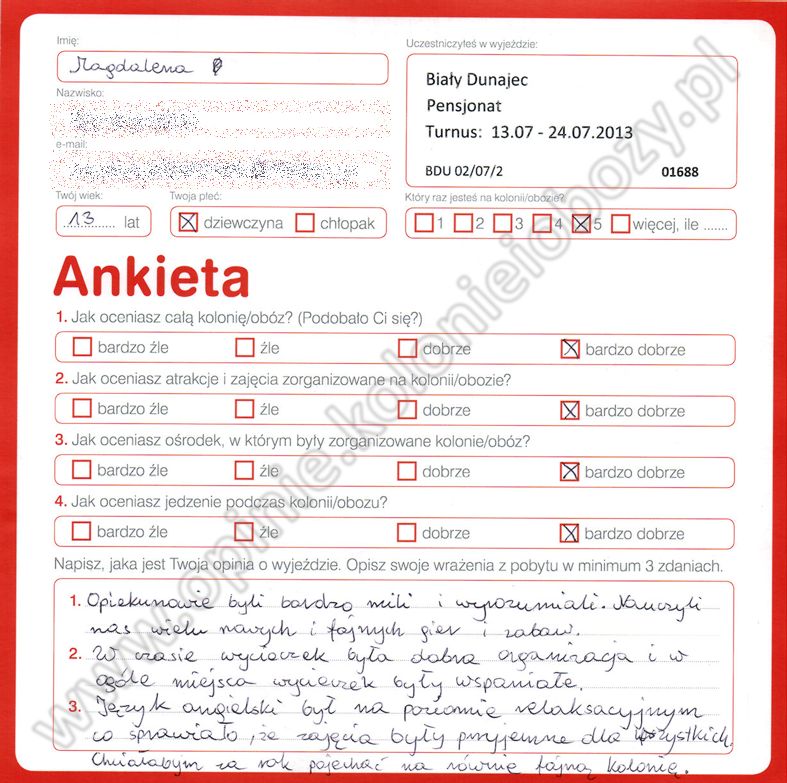 Imię:
Magdalena
Nazwisko:
e-mail:
Twój wiek:
13 lat
Twoja płeć:
dziewczyna chłopak
Uczestniczyłeś w wyjeździe:
Biały Dunajec
Pensjonat
Turnus: 13.07 - 24.07.2013
BDU 02/07/2 01688
Który raz jesteś na kolonii/obozie?
1 2 3 4 5 więcej, ile .......
Ankieta
1. Jak oceniasz całą kolonię/obóz? (Podobało Ci się?)
bardzo źle źle dobrze bardzo dobrze
2. Jak oceniasz atrakcje i zajęcia zorganizowane na kolonii/obozie?
bardzo źle źle dobrze bardzo dobrze
3. Jak oceniasz ośrodek, w którym były zorganizowane kolonie/obóz?
bardzo źle źle dobrze bardzo dobrze
4. Jak oceniasz jedzenie podczas kolonii/obozu?
bardzo źle źle dobrze bardzo dobrze
Napisz, jaka jest Twoja opinia o wyjeździe. Opisz swoje wrażenia z pobytu w minimum 3 zdaniach.
1. Opiekunowie byli bardzo mili i wyrozumiali. Nauczyli
nas wielu nowych i fajnych gier i zabaw.
2. W czasie wycieczek była dobra organizacja i w
ogóle miejsca wycieczek były wspaniałe.
3. Język angielski był na poziomie relaksacyjnym
co sprawiało, że zajęcia były przyjemne dla wszystkich.
Chciałabym za rok pojechać na równie fajną kolonię.
www.opinie.kolonieiobozy.pl